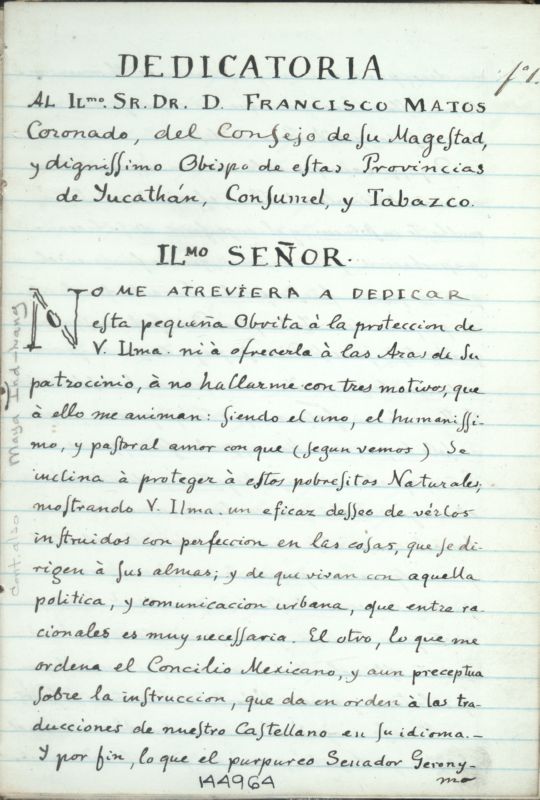 DEDICATORIA
fº1.
AL ILmo. SR. DR. D. FRANCISCO MATOS
Coronado, del Conſejo de ſu Mageſtad,
y digniſſimo Obispo de eſtas Provincias
de Yucathán, Conſumel, y Tabazco.
ILMO SEÑOR.
NO ME ATREVIERA A DEDICAR
eſta pequeña Obvita à la proteccion de
V. Ilma. ni à ofrecerla à las Aras de Su
patrocinio, à no hallarme con tres motivos, que
à ello me animan: ſiendo el uno, el humaniſſi-
mo, y paſtoral amor con que (ſegun vemos) Se
inclina à proteger à eſtos pobreſitos Naturales;
moſtrando V. Ilma. un eficaz deſſeo de vérlos
inſtruidos con perfeccion en las coſas, que ſe di-
rigen à ſus almas; y de que vivan con aquella
politica, y comunicacion urbana, que entre ra-
cionales es muy neceſſaria. El otro, lo que me
ordena el Concilio Mexicano, y aun preceptua
ſobre la inſtruccion, que da en orden à las tra-
ducciones de nueſtro Caſtellano en ſu idioma.-
Y por fin, lo que el purpureo Senador Gerony-
mo
144964